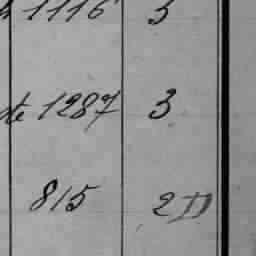 1116 3
de 1287 3
815 2 D